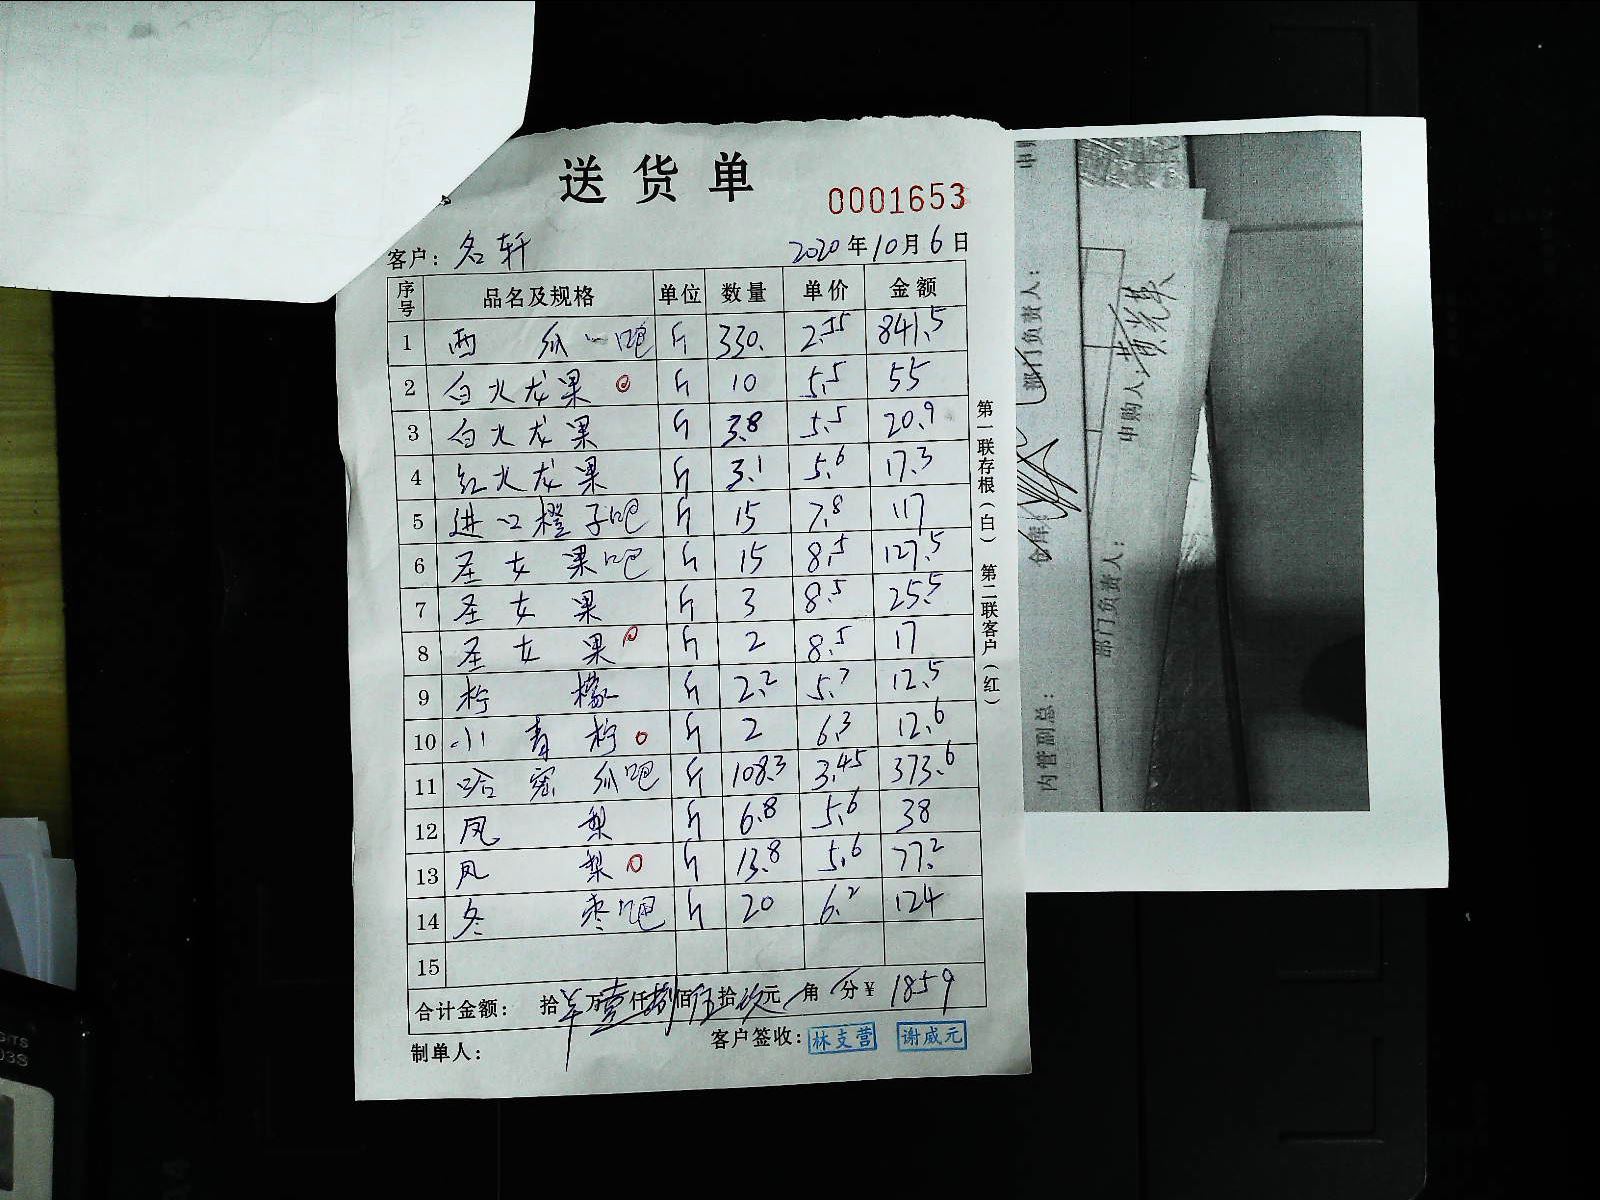 送货单
0001653
客户: 名轩 2020年10月6日
序号 品名及规格 单位 数量 单价 金额
1 西瓜-吧 斤 330. 2.55 841.5
2 白火龙果 斤 10 5.5 55
3 白火龙果 斤 3.8 5.5 20.9
4 红火龙果 斤 3.1 5.6 17.3
5 进口橙子吧 斤 15 7.8 117
6 圣女果吧 斤 15 8.5 127.5
7 圣女果 斤 3 8.5 25.5
8 圣女果 斤 2 8.5 17
9 柠檬 斤 2.2 5.7 12.5
10 小青柠 斤 2 6.3 12.6
11 哈密瓜吧 斤 108.3 3.45 373.6
12 凤梨 斤 6.8 5.6 38
13 凤梨 斤 13.8 5.6 77.2
14 冬枣吧 斤 20 6.2 124
15
合计金额: 拾 万壹仟捌佰伍拾玖元 角 分 ¥ 1859
制单人: 客户签收: 林支营 谢威元
第一联存根(白) 第二联客户(红)
部门负责人:
申购人:
仓库
部门负责人:
内管副总: